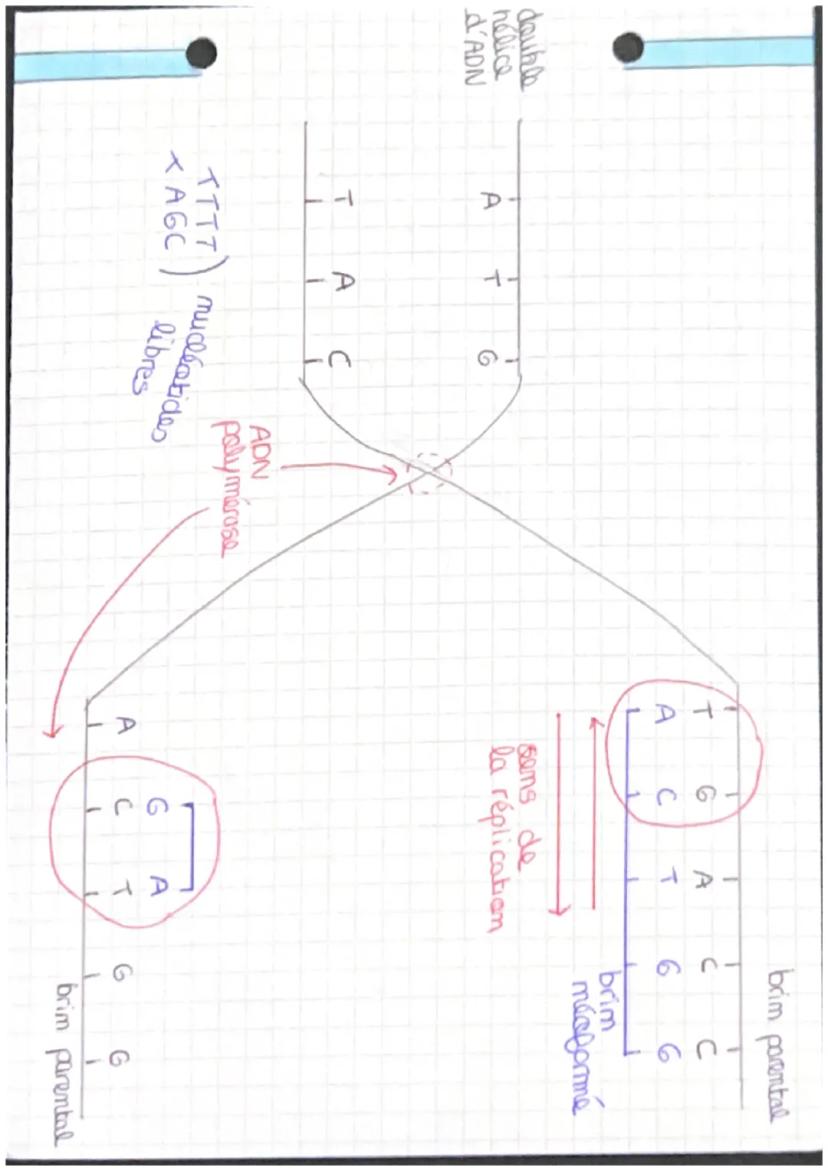 brin parental
T G A C C
A C T G G
brin
néoformé
sens de
la réplication
double
hélice
d'ADN
A T G
T A C
ADN
polymérase
nucléotides
libres
T T T T
T A G C
G A
A C T G G
brin parental